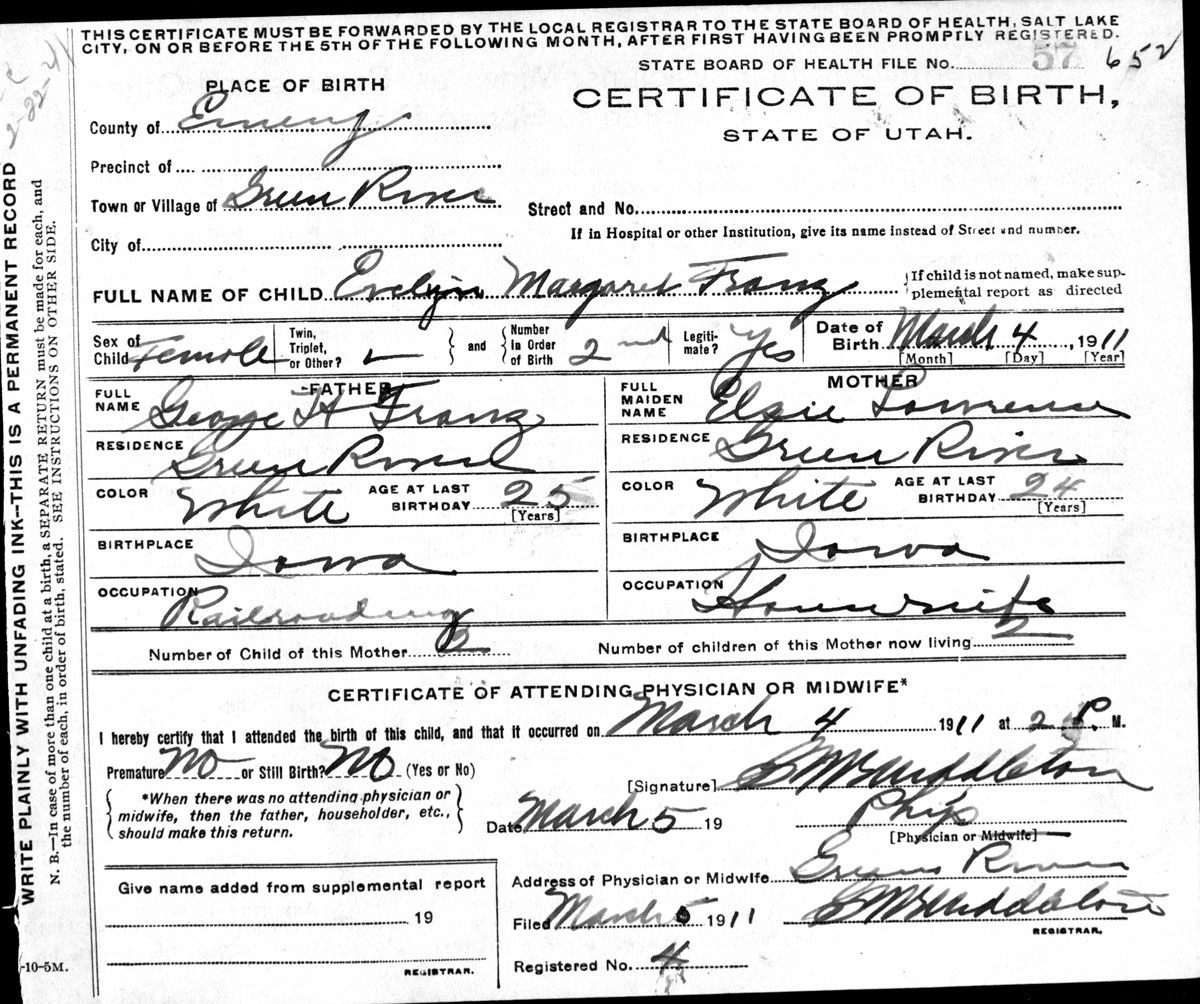 THIS CERTIFICATE MUST BE FORWARDED BY THE LOCAL REGISTRAR TO THE STATE BOARD OF HEALTH, SALT LAKE
CITY, ON OR BEFORE THE 5TH OF THE FOLLOWING MONTH, AFTER FIRST HAVING BEEN PROMPTLY REGISTERED.
STATE BOARD OF HEALTH FILE No. 57 652
PLACE OF BIRTH
CERTIFICATE OF BIRTH,
STATE OF UTAH.
County of Emery
Precinct of
Town or Village of Green River
Street and No.
City of
If in Hospital or other Institution, give its name instead of Street and number.
FULL NAME OF CHILD Evelyn Margaret Franz
If child is not named, make sup-
plemental report as directed
Sex of Child Female
Twin, Triplet, or Other?
and
Number in Order of Birth 2nd
Legiti-mate? Yes
Date of Birth March 4, 1911
[Month] [Day] [Year]
FATHER
FULL NAME George H Franz
RESIDENCE Green River
COLOR White AGE AT LAST BIRTHDAY 25
[Years]
BIRTHPLACE Iowa
OCCUPATION Railroading
MOTHER
FULL MAIDEN NAME Elsie Lawrence
RESIDENCE Green River
COLOR White AGE AT LAST BIRTHDAY 24
[Years]
BIRTHPLACE Iowa
OCCUPATION Housewife
Number of Child of this Mother 2
Number of children of this Mother now living 2
CERTIFICATE OF ATTENDING PHYSICIAN OR MIDWIFE*
I hereby certify that I attended the birth of this child, and that it occurred on March 4 1911 at 2 P. M.
Premature No or Still Birth? No (Yes or No)
*When there was no attending physician or
midwife, then the father, householder, etc.,
should make this return.
[Signature] Middleton
Date March 5 19
Phys
[Physician or Midwife]
Give name added from supplemental report
19
REGISTRAR.
Address of Physician or Midwife Green River
Filed March 5 1911 Middleton
REGISTRAR.
Registered No. 4
-10-5M.
WRITE PLAINLY WITH UNFADING INK--THIS IS A PERMANENT RECORD
N. B.—In case of more than one child at a birth, a SEPARATE RETURN must be made for each, and
the number of each, in order of birth, stated. SEE INSTRUCTIONS ON OTHER SIDE.